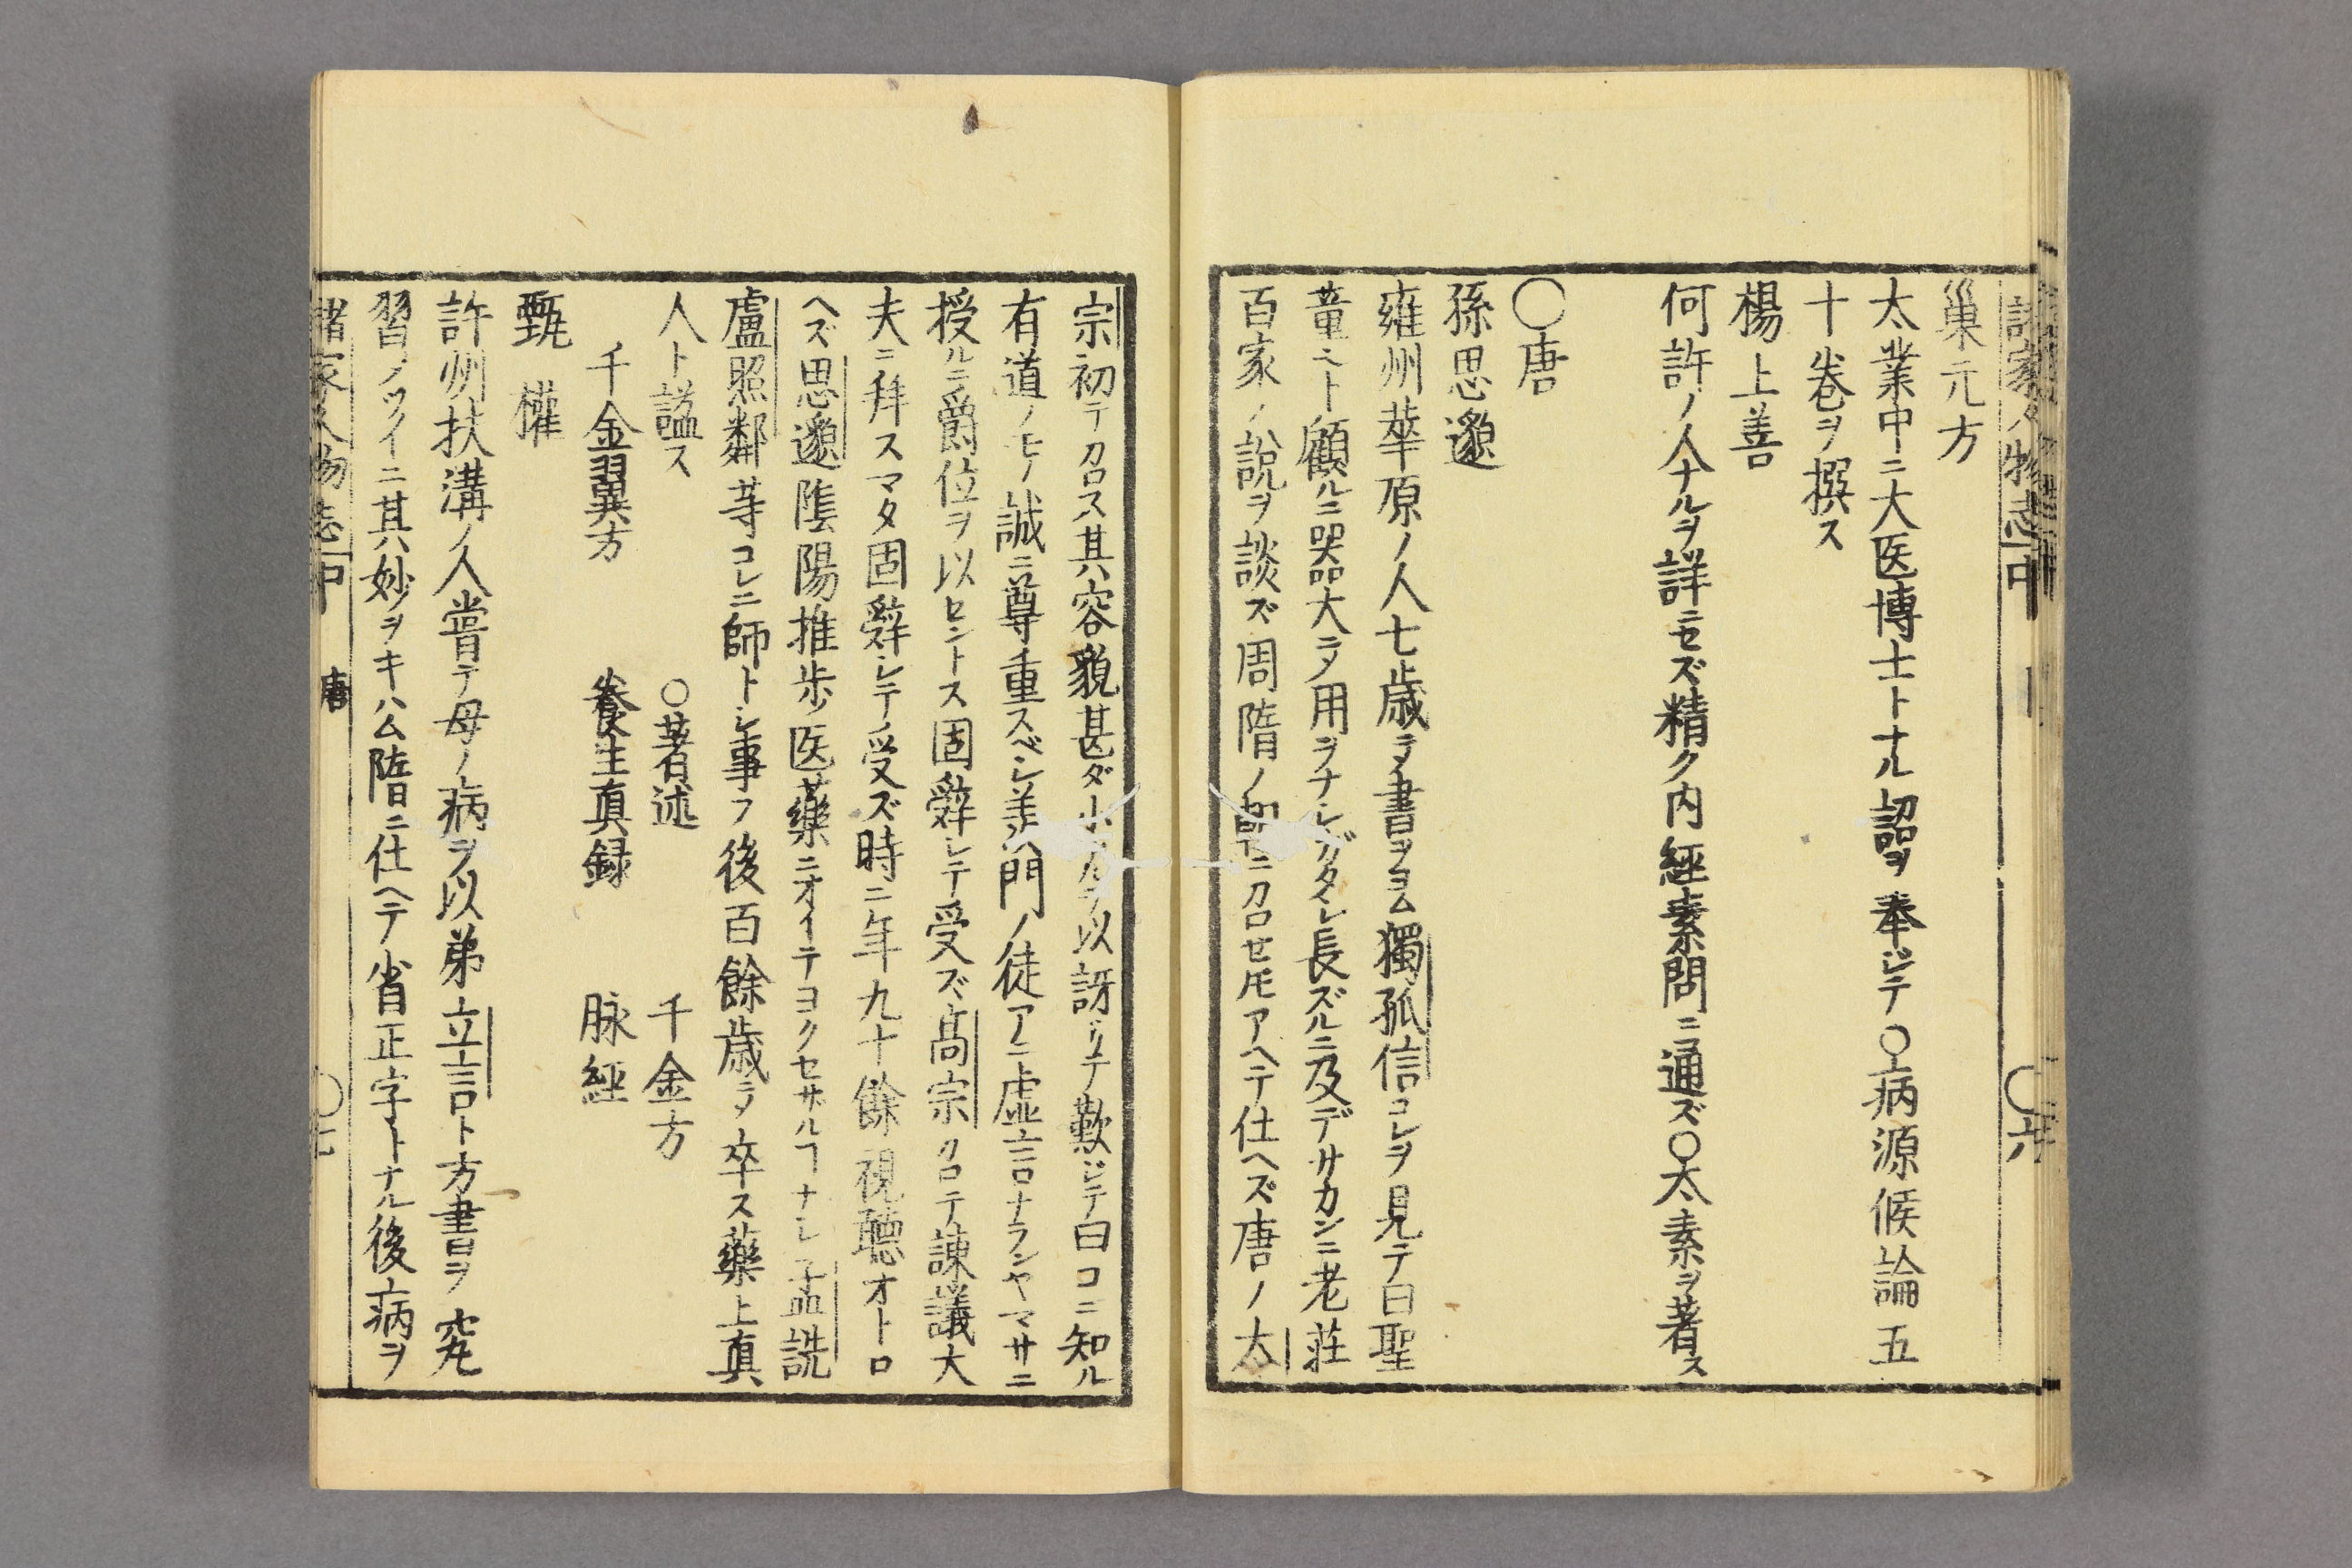 諸家人物志 中
巢元方
太業中ニ大医博士トナル詔ヲ奉ジテ○病源候論五
十巻ヲ撰ス
楊上善
何許ノ人ナルヲ詳ニセズ精ク内経素問ニ通ズ○太素ヲ著ス
○唐
孫思邈
雍州華原ノ人七歳ニテ書ヲヨム獨孤信コレヲ見テ曰聖
童ニト顧ルニ器大ニメ用ヲナシガタシ長ズルニ及デサカンニ老荘
百家ノ說ヲ談ズ周隋ノ朝ニ召セ𪜈アヘテ仕ヘズ唐ノ太
宗初テ召ス其容貌甚ダ少ヲ以訝リテ歎ジテ曰コニ知ル
有道ノモノ誠ニ尊重スベシ羨門ノ徒アニ虚言ナランヤマサニ
授ルニ爵位ヲ以セントス固辤シテ受ズ高宗召テ諫議大
夫ニ拜スマタ固辤シテ受ズ時ニ年九十餘視聽オトロ
ヘズ思邈陰陽推歩医藥ニオイテヨクセサルヿナシ孟詵
盧照鄰等コレニ師トシ事フ後百餘歳ニテ卒ス藥上真
人ト謚ス ○著述 千金方
千金翼方 養生真録 脉経
甄權
許州扶溝ノ人嘗テ母ノ病ヲ以弟立言ト方書ヲ究
習ノツイニ其妙ヲキハム隋ニ仕ヘテ省正字トナル後病ヲ
諸家人物志 中 唐